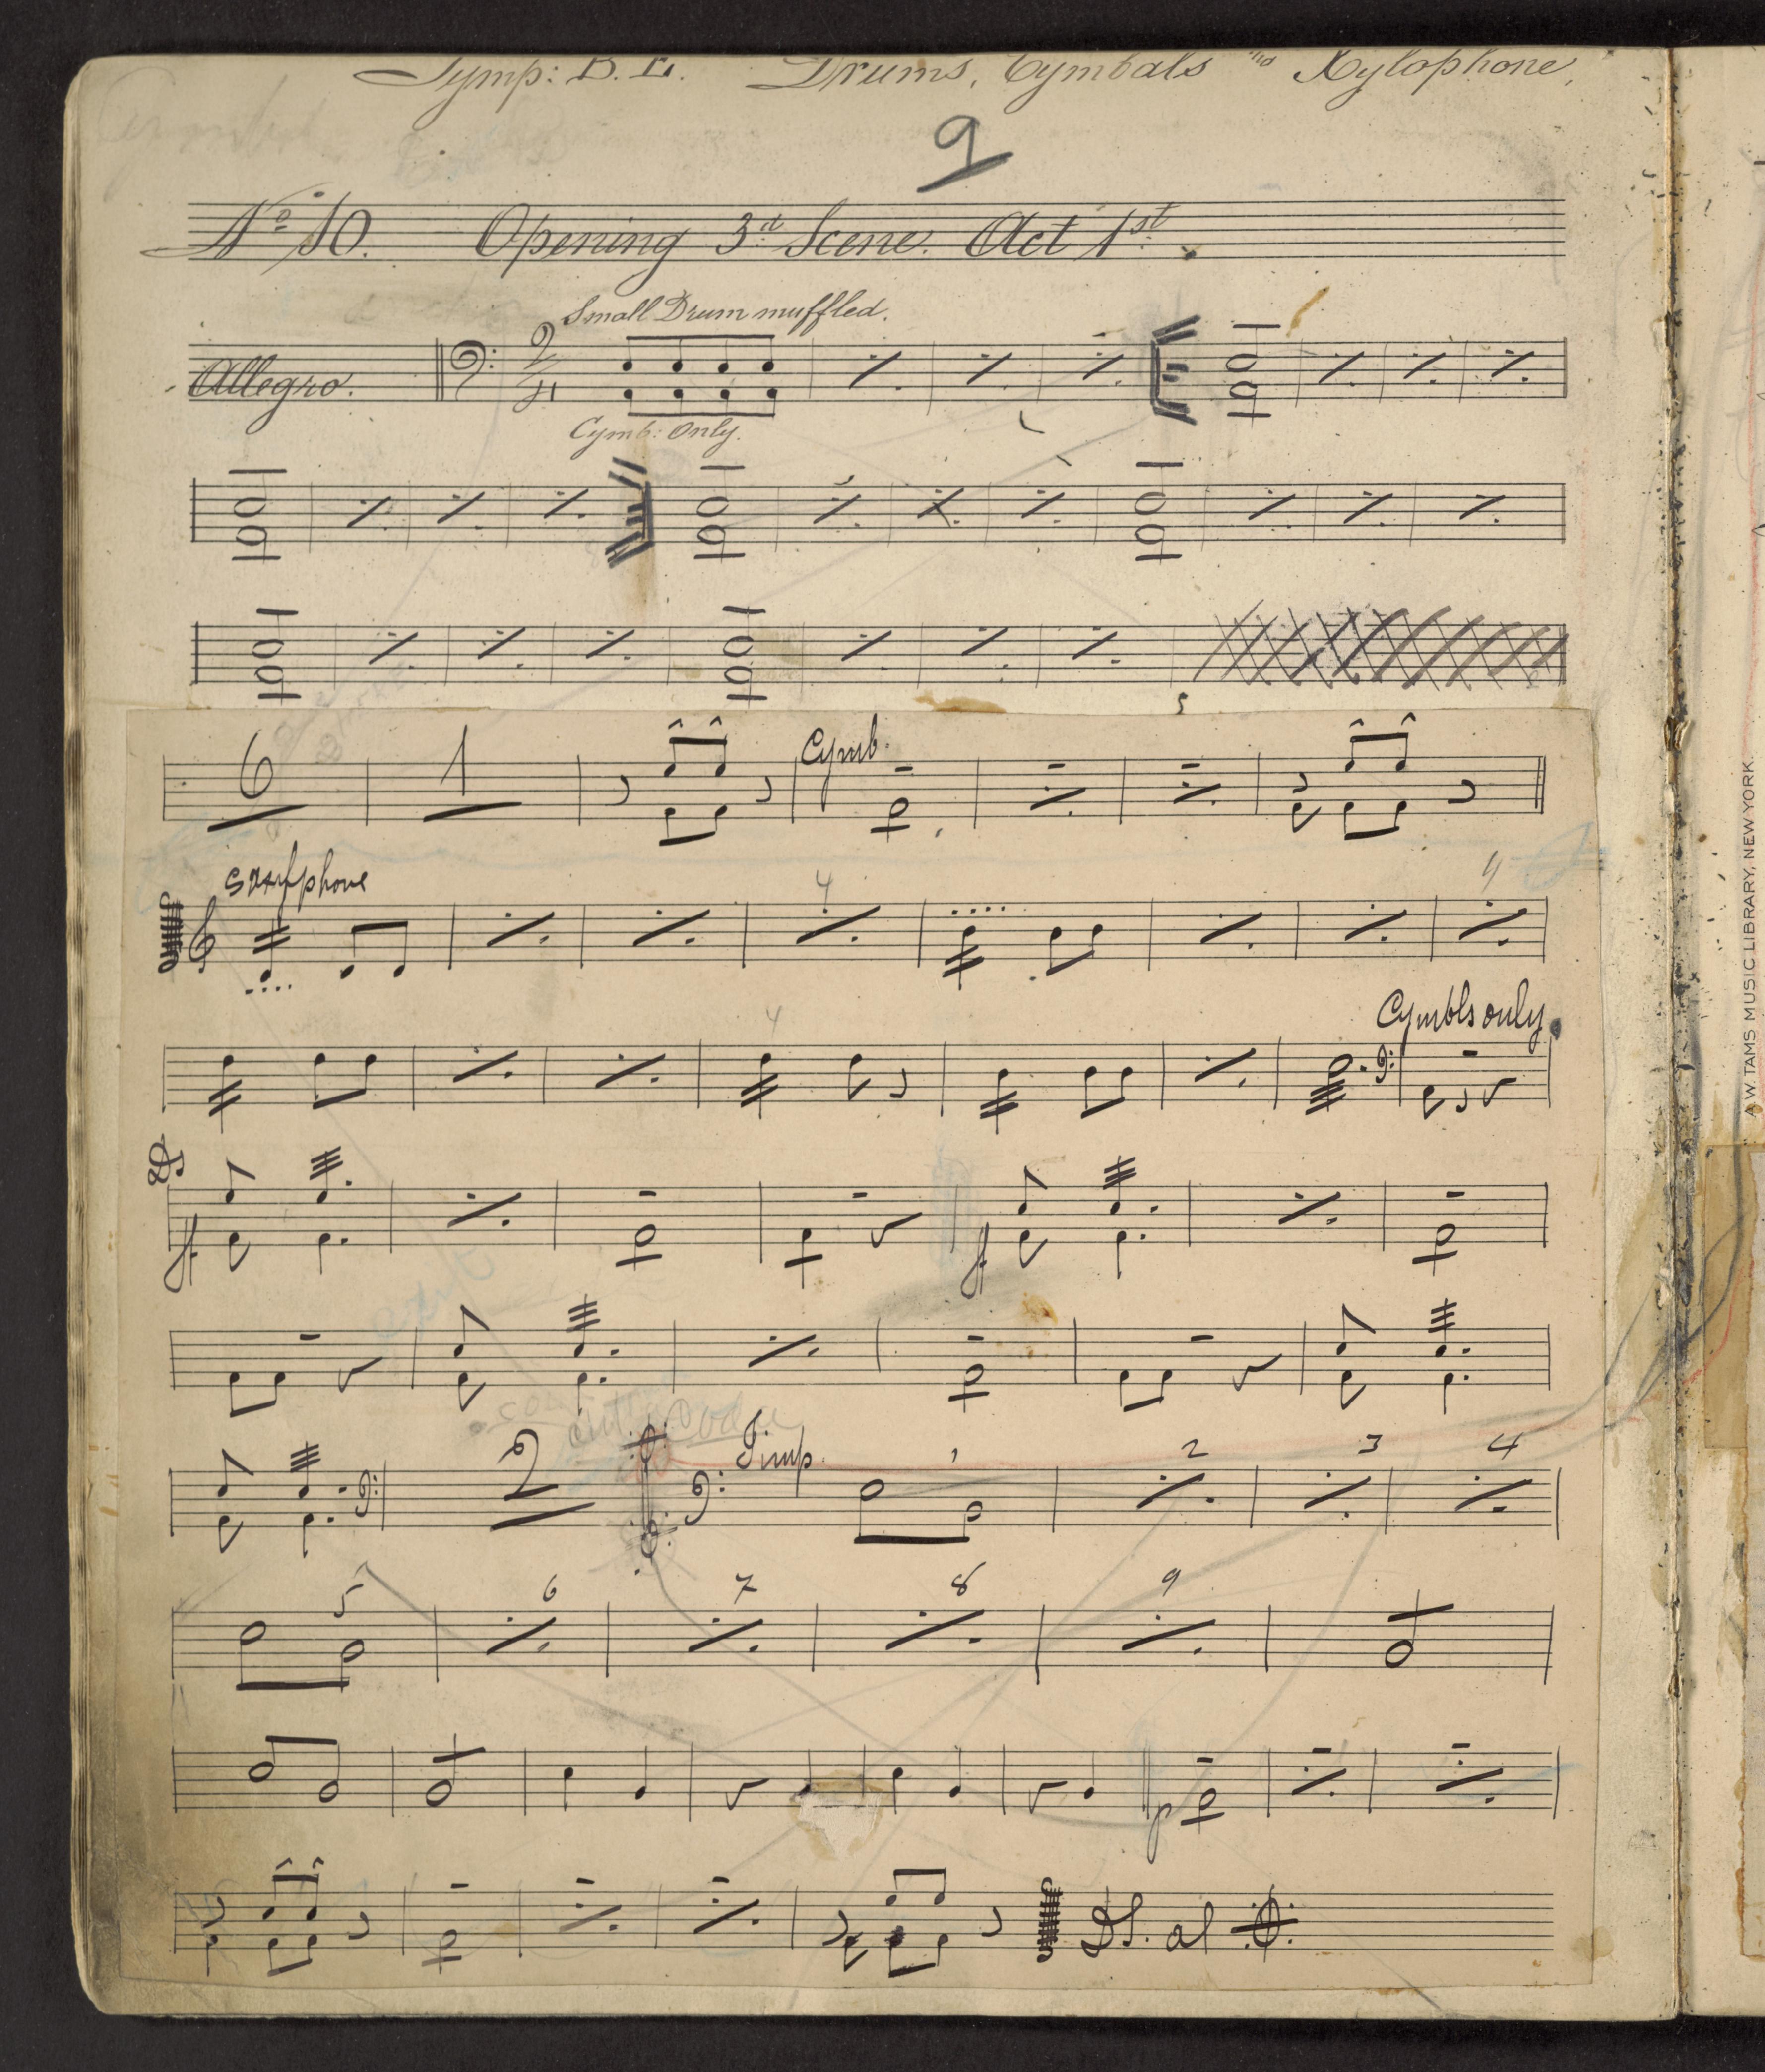 Tymp: B. E. Drums, Cymbals and Xylophone.
9
No 10. Opening 3d Scene. Act 1st.
Small Drum muffled.
Allegro. 2 4
Cymb: Only.
6 1 Cymb.
4 4
4
Cymbls only
ff. ff.
2 Timp. 1 2 3 4
5 6 7 8 9
p
D.S. al
A. W. TAMS MUSIC LIBRARY, NEW YORK.